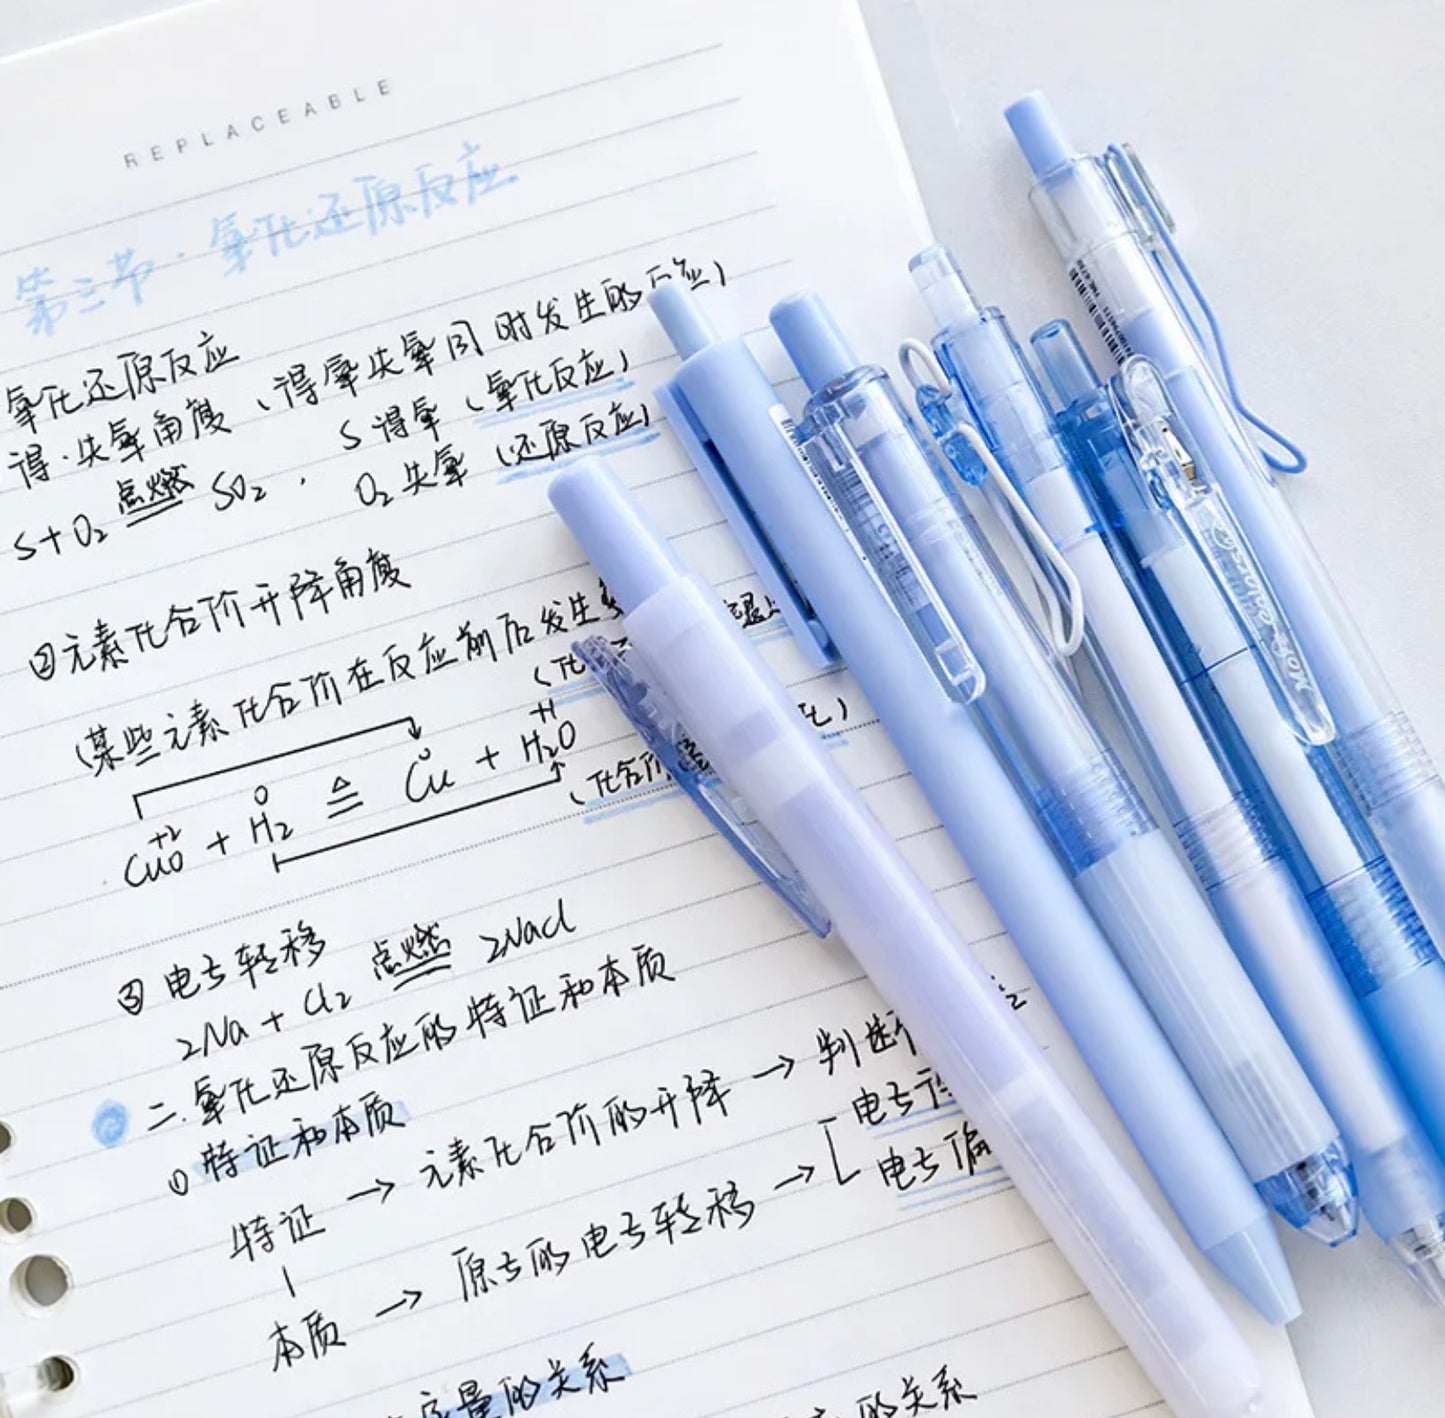 REPLACEABLE
第三节·氧化还原反应
氧化还原反应
得·失氧角度（得氧失氧同时发生的反应）
S+O₂ 点燃 SO₂， S得氧（氧化反应）
O₂失氧（还原反应）
②元素化合价升降角度
（某些元素化合价在反应前后发生
+2 0 0 +1
CuO + H₂ △ Cu + H₂O
（化合价
③电子转移
2Na + Cl₂ 点燃 2NaCl
二.氧化还原反应的特征和本质
①特征和本质
特征 → 元素化合价的升降 → 判断
本质 → 原子的电子转移 → 电子
电子偏
量的关系
的关系
More colors